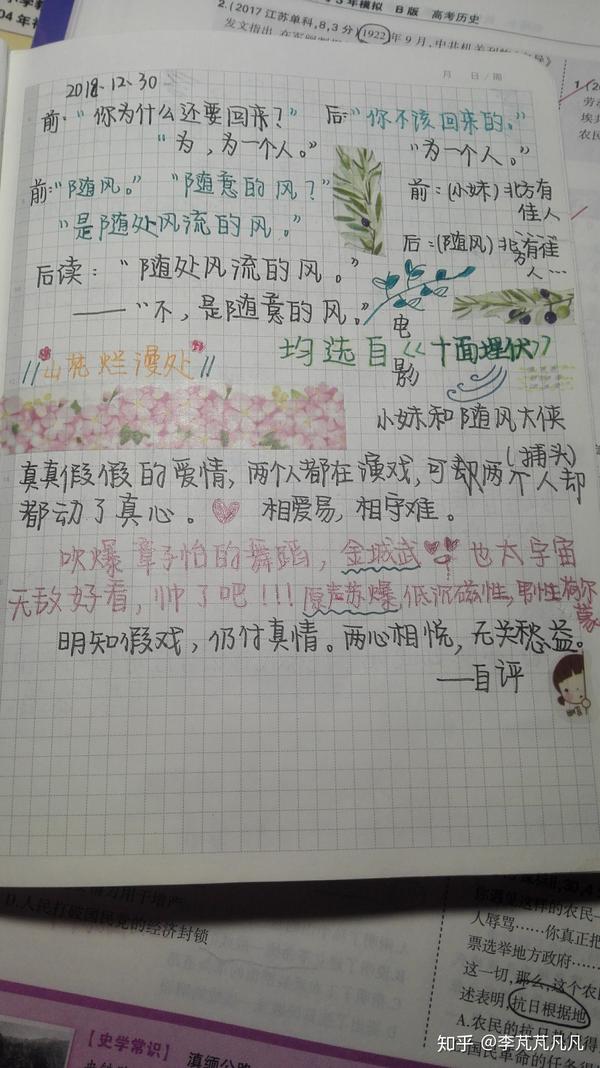 年模拟 B版 高考历史
2.(2017江苏单科,8,3分)1922年9月,中共机关刊物《
月 日/周
2018.12.30
前:“你为什么还要回来?” 后:“你不该回来的。”
“为,为一个人。” “为一个人。”
前:“随风。” “随意的风?” 前:(小妹)北方有
佳人
“是随处风流的风。”
后:(随风)北方有佳
人…
后读:“随处风流的风。”
——“不,是随意的风。”
均选自《十面埋伏》
电
影
//山花烂漫处//
小妹和随风大侠
(捕头)
真真假假的爱情,两个人都在演戏,可却两个人却
都动了真心。 相爱易,相守难。
吹爆章子怡的舞蹈,金城武 也太宇宙
无敌好看,帅了吧!!!原声苏爆低沉磁性,男性荷尔
蒙
明知假戏,仍付真情。两心相悦,无关愁益。
——自评
D.人民打破国民党的经济封锁
人辱骂……你真正把
票选举地方政府……
这一切,那么,这个农
述表明,抗日根据地
A.农民的抗日
国民革命的任务得
【史学常识】 滇缅公路
知乎 @李芃芃凡凡